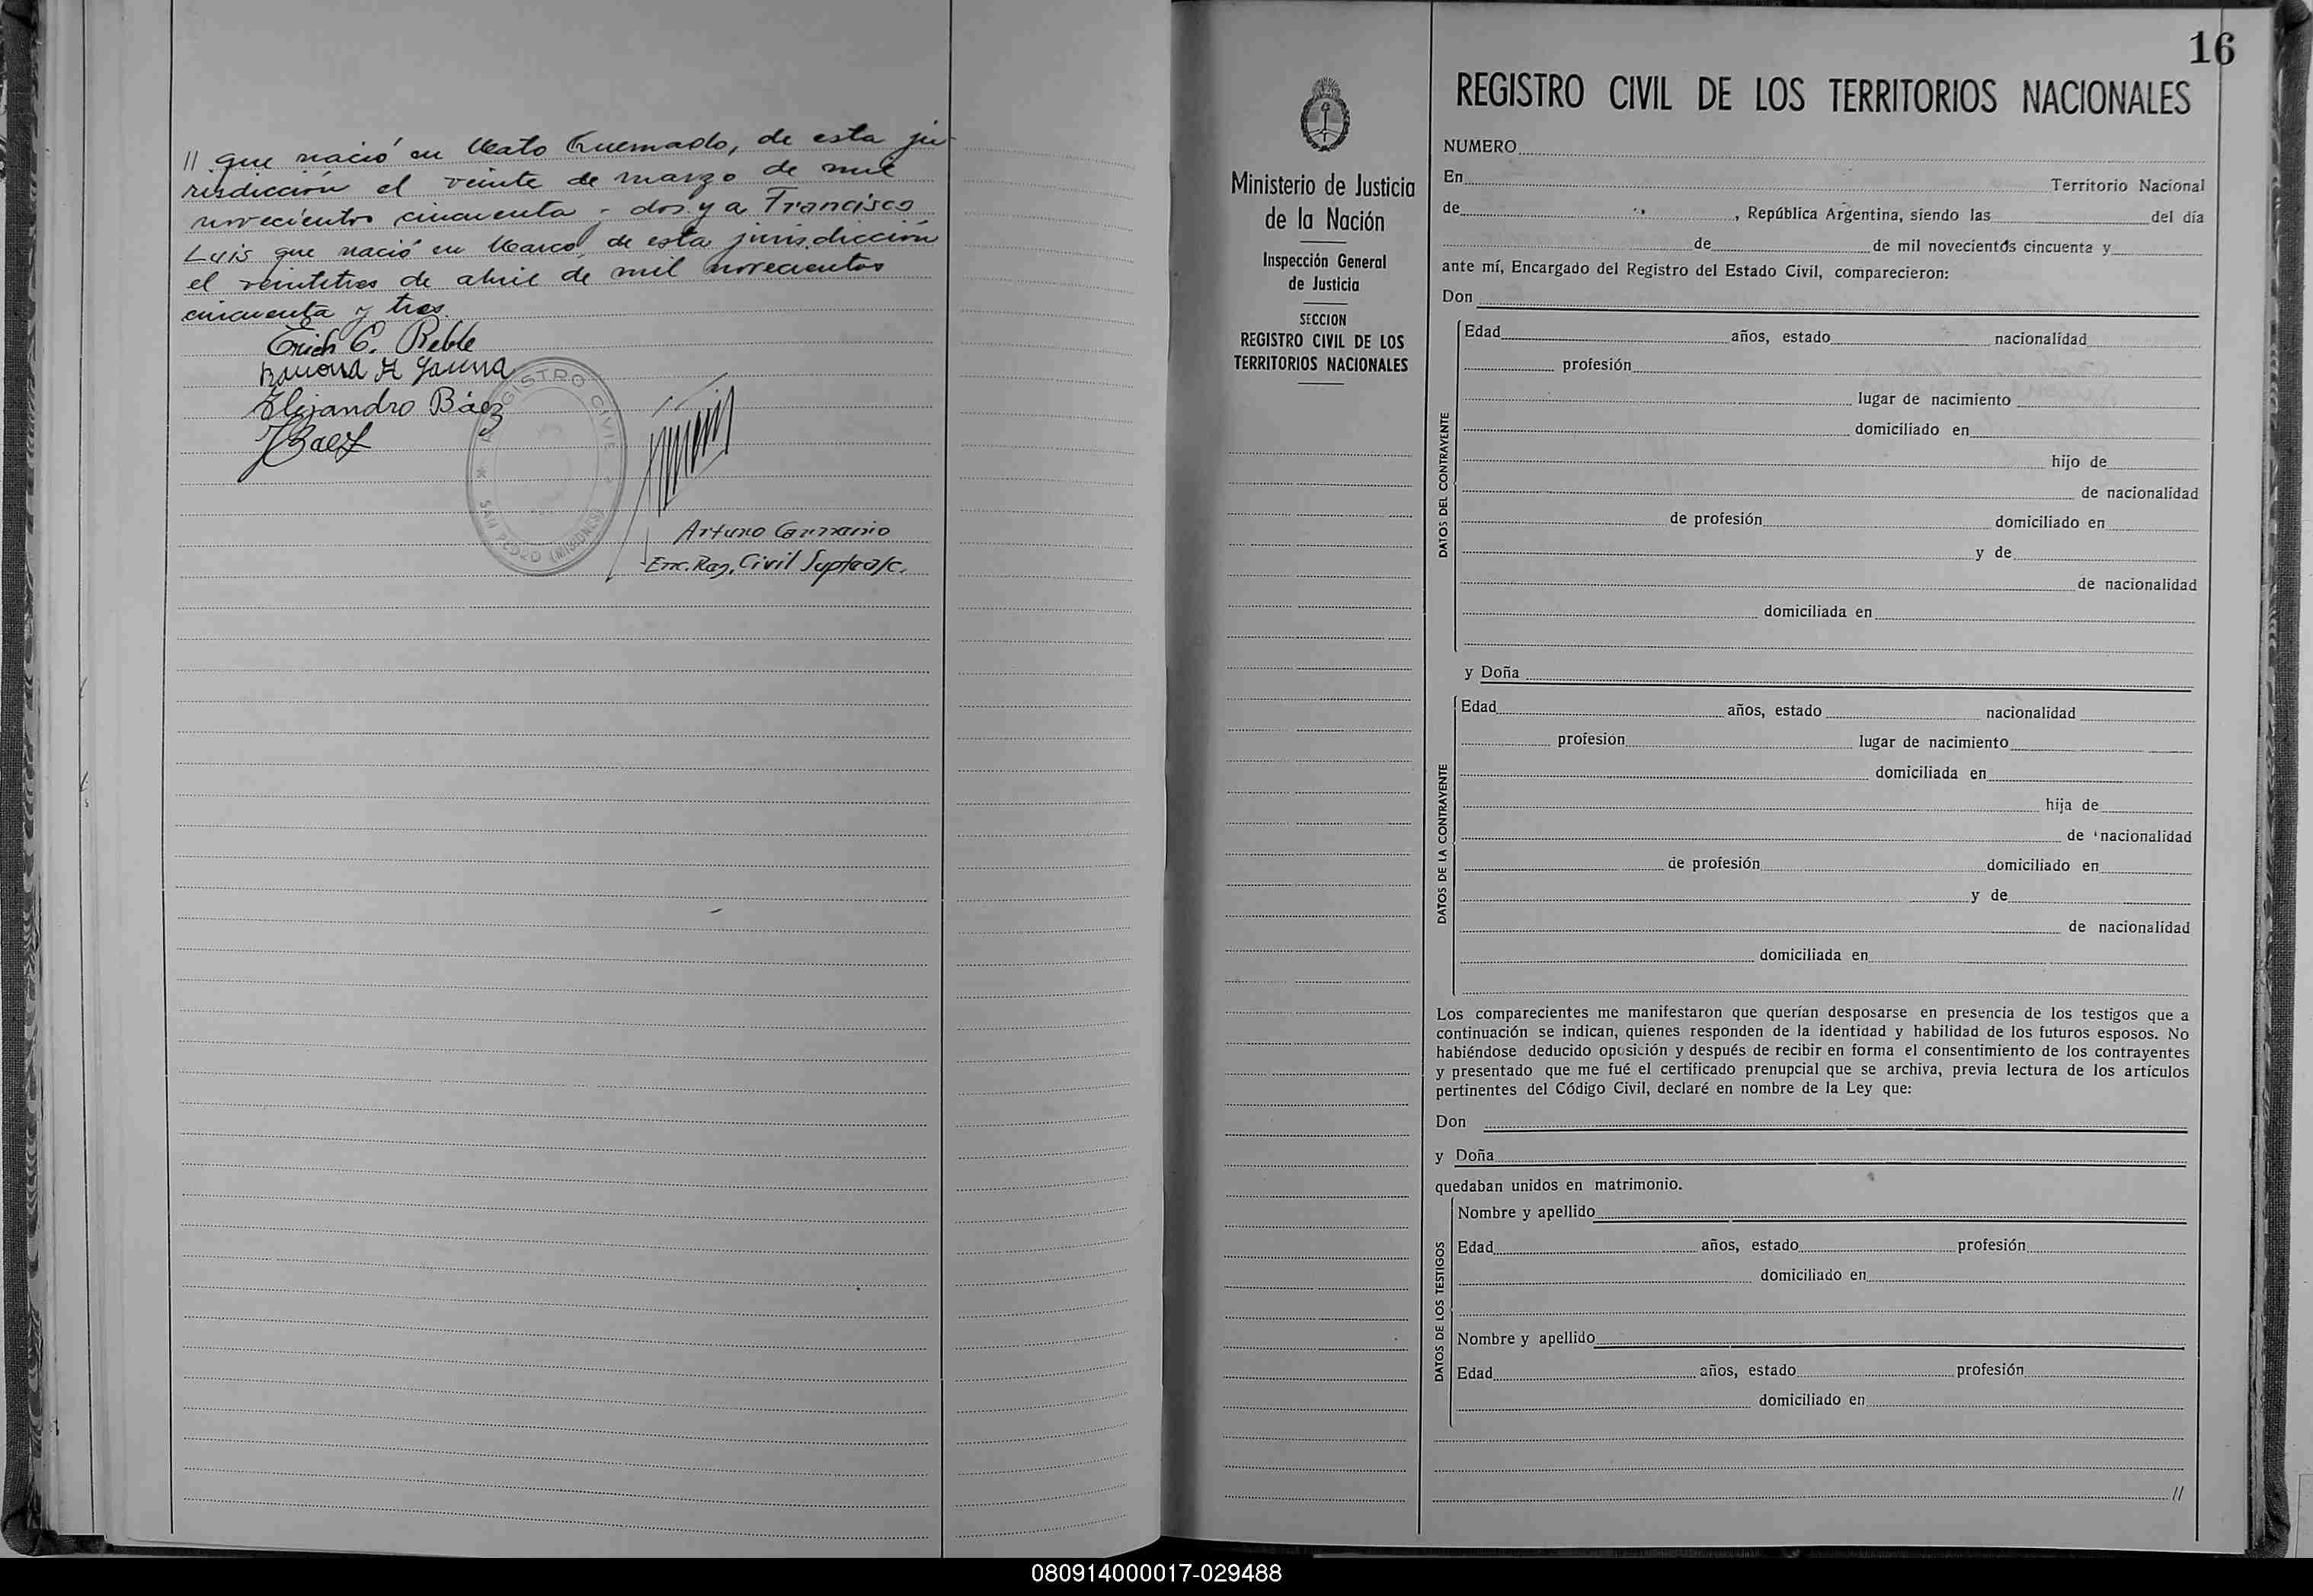 // que nació en Mato Quemado, de esta ju
risdicción el veinte de marzo de mil
novecientos cincuenta y dos y a Francisco
Luis que nació en Marco, de esta jurisdicción
el veintitres de abril de mil novecientos
cincuenta y tres
Erich C. Reble
Ramona H Gauna
Alejandro Báez
JBaez
REGISTRO CIVIL
SAN PEDRO (MISIONES)
Arturo
Enc. Reg. Civil Supte a/c.
16
Ministerio de Justicia
de la Nación
Inspección General
de Justicia
SECCION
REGISTRO CIVIL DE LOS
TERRITORIOS NACIONALES
REGISTRO CIVIL DE LOS TERRITORIOS NACIONALES
NUMERO
En Territorio Nacional
de , República Argentina, siendo las del día
de de mil novecientos cincuenta y
ante mí, Encargado del Registro del Estado Civil, comparecieron:
Don
DATOS DEL CONTRAYENTE
Edad años, estado nacionalidad
profesión
lugar de nacimiento
domiciliado en
hijo de
de nacionalidad
de profesión domiciliado en
y de
de nacionalidad
domiciliada en
y Doña
DATOS DE LA CONTRAYENTE
Edad años, estado nacionalidad
profesión lugar de nacimiento
domiciliada en
hija de
de nacionalidad
de profesión domiciliado en
y de
de nacionalidad
domiciliada en
Los comparecientes me manifestaron que querían desposarse en presencia de los testigos que a
continuación se indican, quienes responden de la identidad y habilidad de los futuros esposos. No
habiéndose deducido oposición y después de recibir en forma el consentimiento de los contrayentes
y presentado que me fué el certificado prenupcial que se archiva, previa lectura de los artículos
pertinentes del Código Civil, declaré en nombre de la Ley que:
Don
y Doña
quedaban unidos en matrimonio.
DATOS DE LOS TESTIGOS
Nombre y apellido
Edad años, estado profesión
domiciliado en
Nombre y apellido
Edad años, estado profesión
domiciliado en
//
080914000017-029488